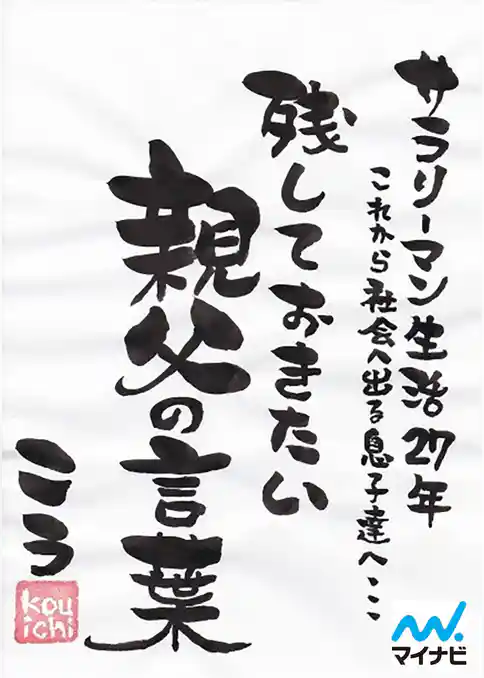 サラリーマン生活27年
これから社会へ出る息子達へ・・
残しておきたい
親父の言葉
こう
kou
ichi
マイナビ